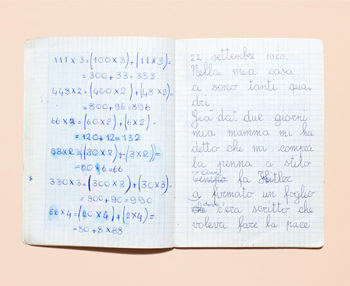 111 X 3 = (100 X 3) + (11 X 3) =
= 300 + 33 = 333
448 X 2 = (400 X 2) + (48 X 2) =
= 800 + 96 = 896
66 X 2 = (60 X 2) + (6 X 2) =
= 120 + 12 = 132
43 X 2 = (30 X 2) + (3 X 2) =
= 60 6 = 66
330 X 3 = (300 X 3) + (30 X 3) =
= 900 + 90 = 990
22 X 4 = (20 X 4) + (2 X 4) =
= 80 + 8 = 88
22 settembre
Nella mia casa
a sono tanti qua
dri.
Già dai due giorni
mia mamma mi ha
detto che mi compra
la penna a stilo
anni
fa Hitler
a firmato un foglio
c'era scritto che
voleva fare la pace